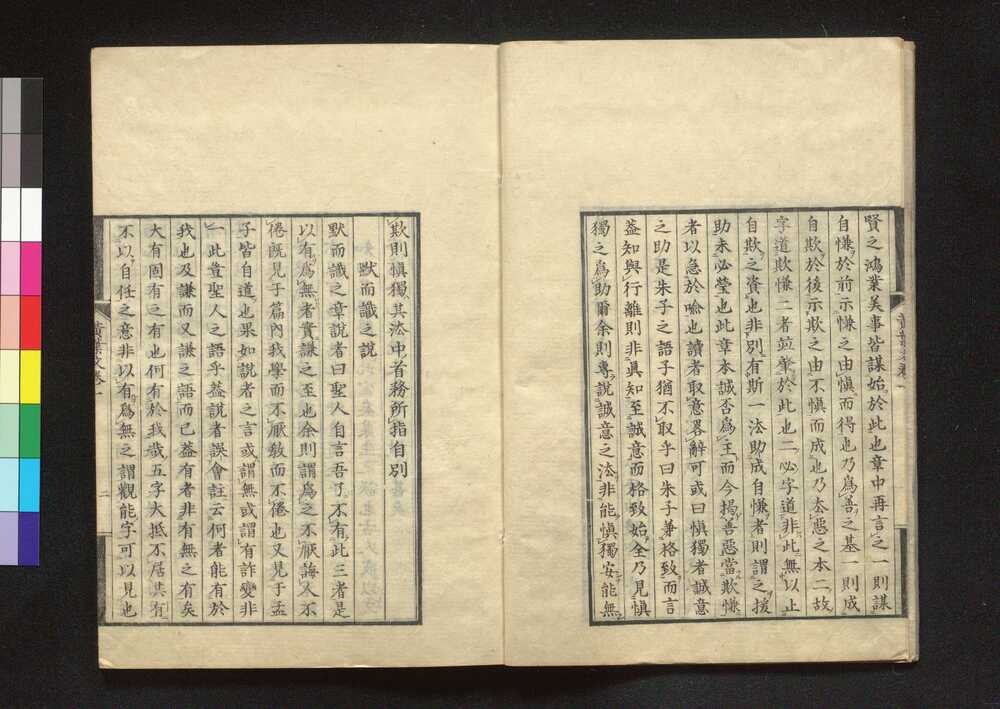 賢之鴻業美事皆謀始於此也章中再言之一則謀
自慊於前示慊之由愼而得也乃爲善之基一則成
自欺於後示欺之由不愼而成也乃去惡之本二故
字道欺慊二者並肇於此也二必字道非此無以止
自欺之資也非別有斯一法助成自慊者則謂之援
助未必瑩也此章本誠否爲主而今揭善惡當欺慊
者以急於喩也讀者取意畧辭可或曰愼獨者誠意
之助是朱子之語子猶不取乎曰朱子兼格致而言
葢知與行離則非眞知至誠意而格致始全乃見愼
獨之爲助爾余則專說誠意之法非能愼獨安能無
欺則愼獨其法中首務所指自別
默而識之說
默而識之章說者曰聖人自言吾乃不有此三者是
以有爲無者實謙之至也余則謂爲之不厭誨人不
倦既見于篇內我學而不厭敎而不倦也又見于孟
子皆自道也果如說者之言或謂無或謂有詐變非
一此豈聖人之語乎葢說者誤會註云何者能有於
我也及謙而又謙之語而已葢有者非有無之有矣
大有固有之有也何有於我哉五字大抵不居其有
不以自任之意非以有爲無之謂觀能字可以見也
二